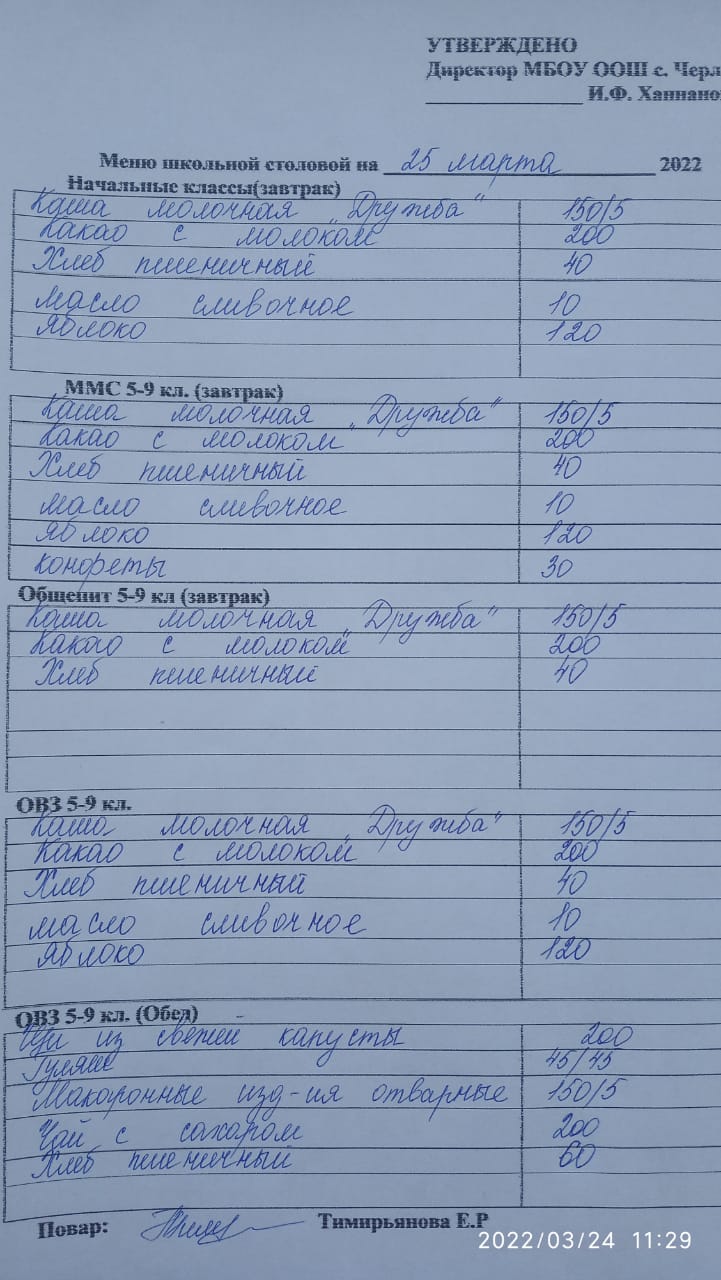 УТВЕРЖДЕНО
Директор МБОУ ООШ с. Черл
И.Ф. Ханнано
Меню школьной столовой на 25 марта 2022
Начальные классы(завтрак)
Каша молочная „Дружба“ 150/5
Какао с молоком 200
Хлеб пшеничный 40
масло сливочное 10
Яблоко 120
ММС 5-9 кл. (завтрак)
Каша молочная „Дружба“ 150/5
Какао с молоком 200
Хлеб пшеничный 40
масло сливочное 10
Яблоко 120
конфеты 30
Общепит 5-9 кл (завтрак)
Каша молочная „Дружба“ 150/5
Какао с молоком 200
Хлеб пшеничный 40
ОВЗ 5-9 кл.
Каша молочная „Дружба“ 150/5
Какао с молоком 200
Хлеб пшеничный 40
масло сливочное 10
Яблоко 120
ОВЗ 5-9 кл. (Обед)
Щи из свежей капусты 200
Гуляш 45/45
Макаронные изд-ия отварные 150/5
Чай с сахаром 200
Хлеб пшеничный 60
Повар: Тимирьянова Е.Р
2022/03/24 11:29